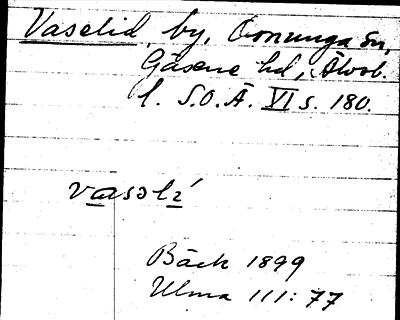 Vaselid, by, Ornunga sn,
Gäsene hd, Älvsb.
l. S.O.Ä. VI s. 180.
vasəlí
Bäck 1899
Ulma 111:77